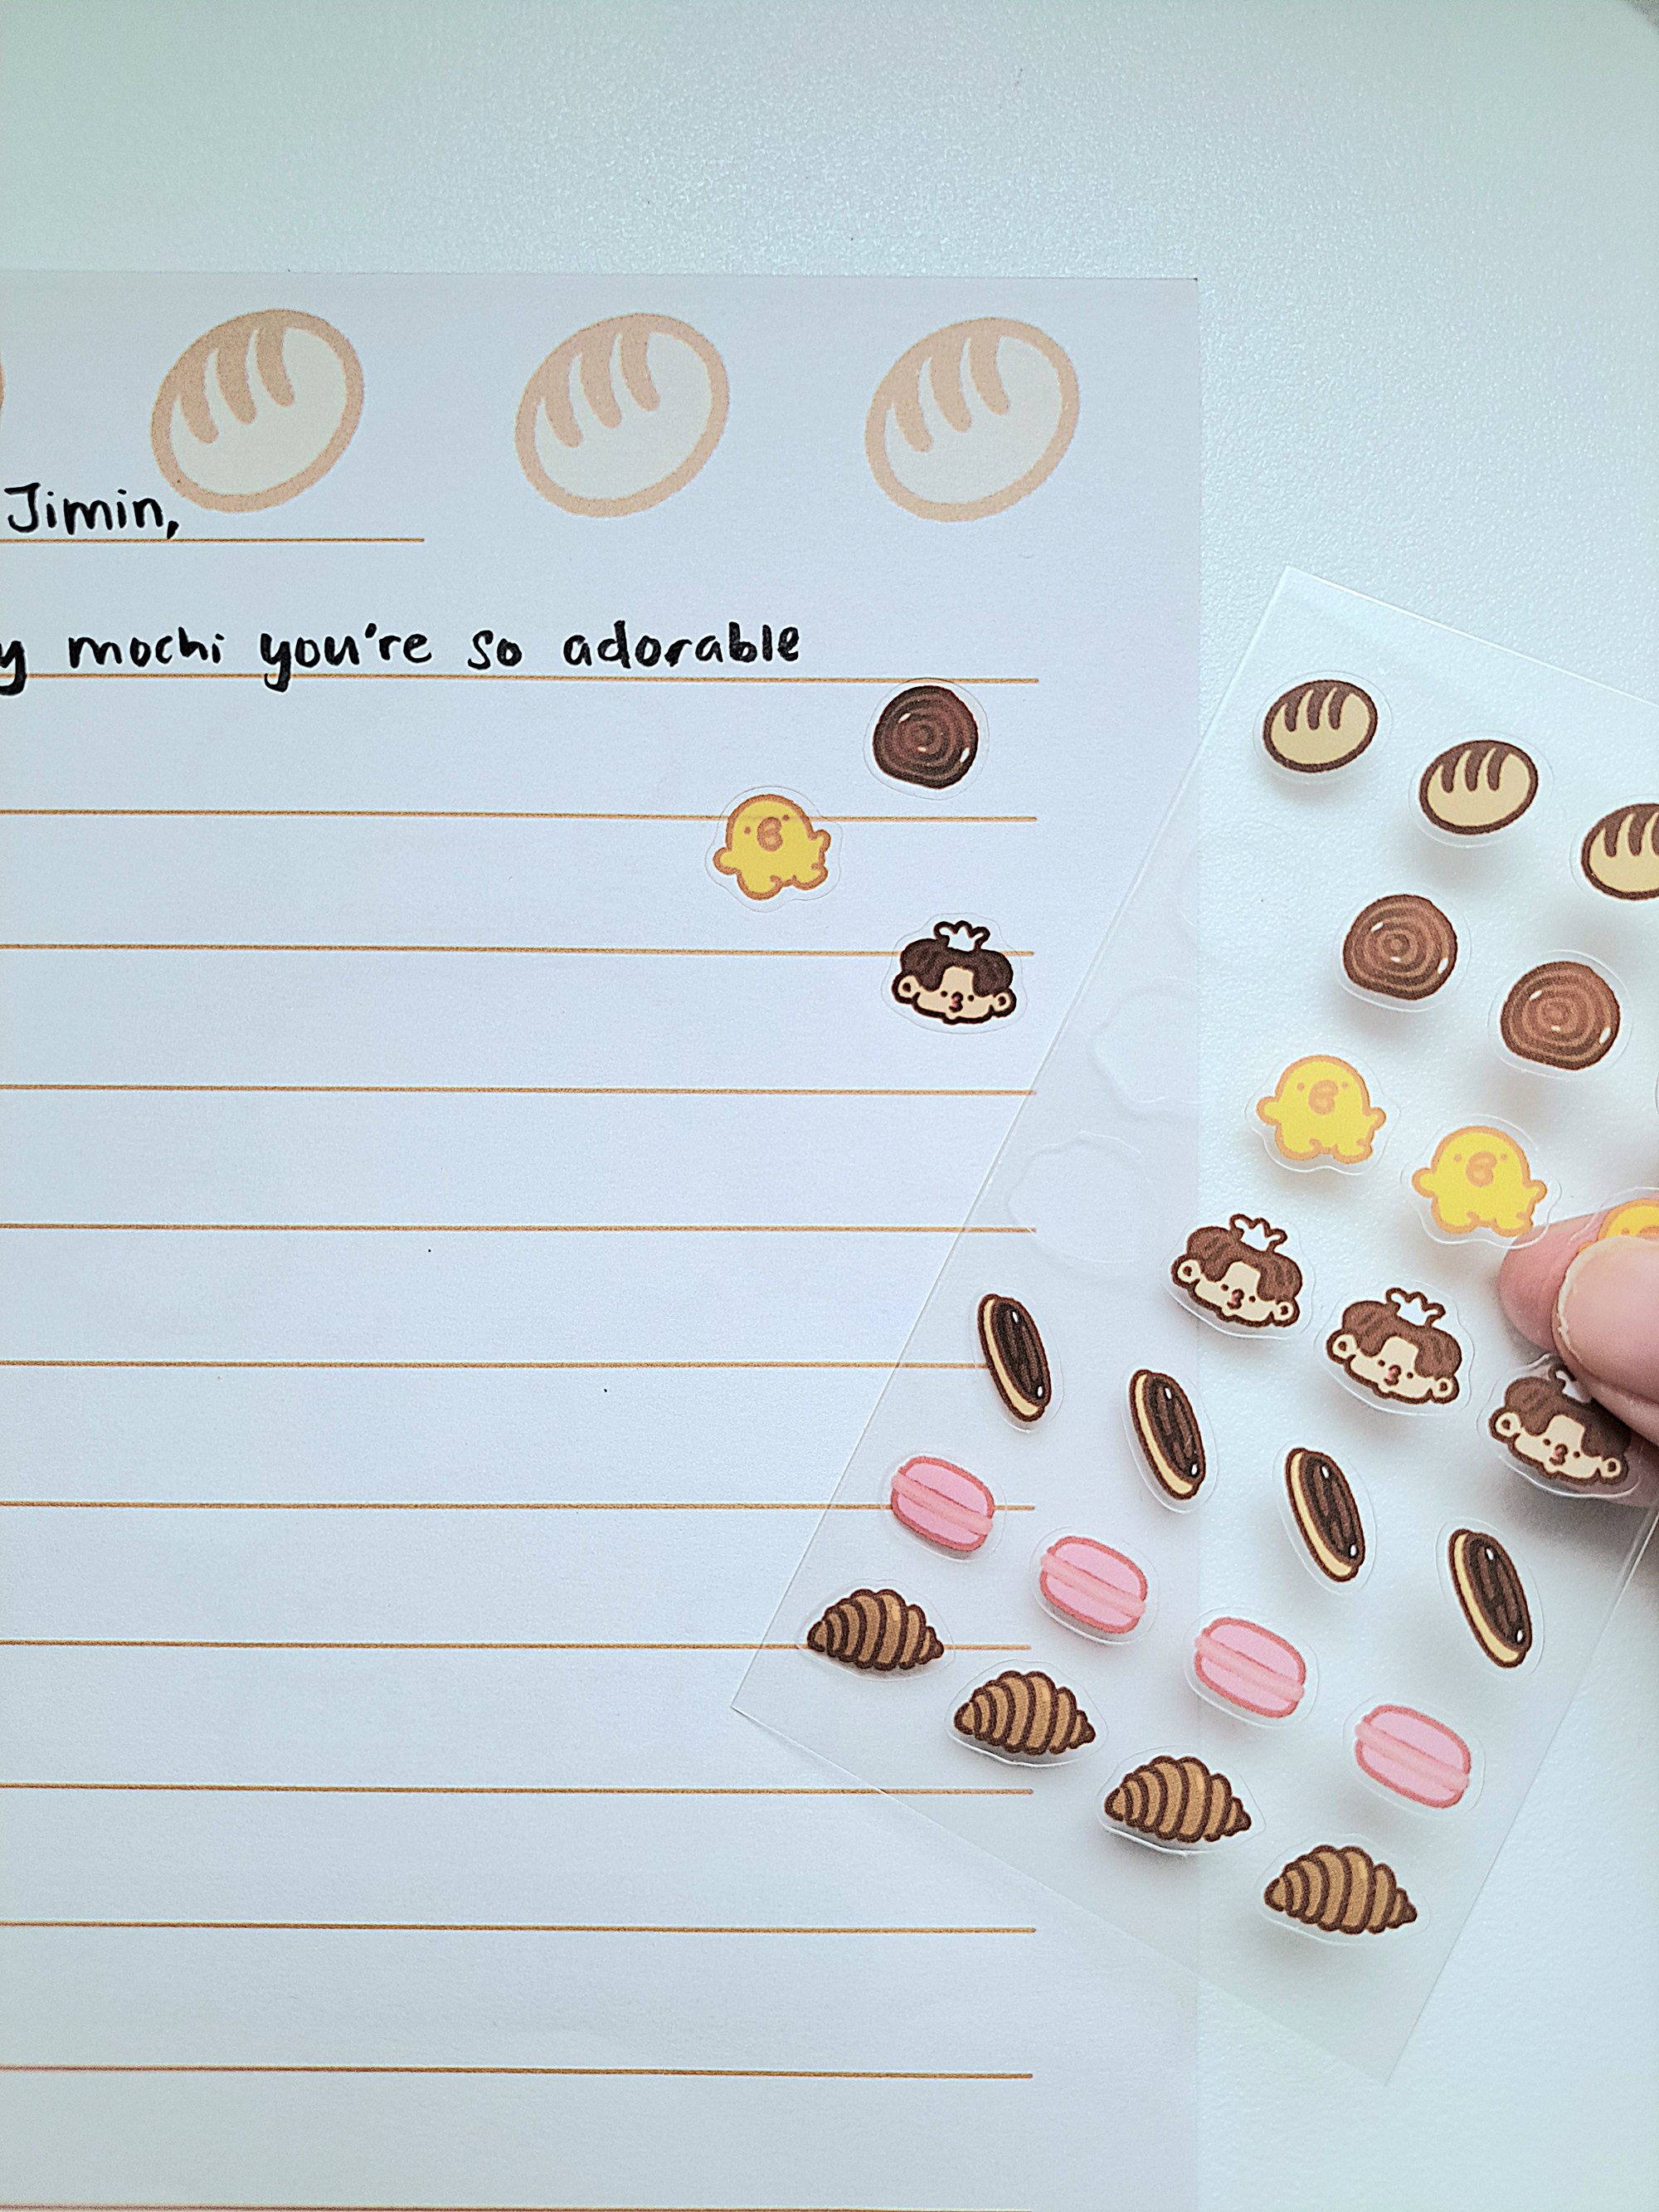 Jimin,
y mochi you're so adorable